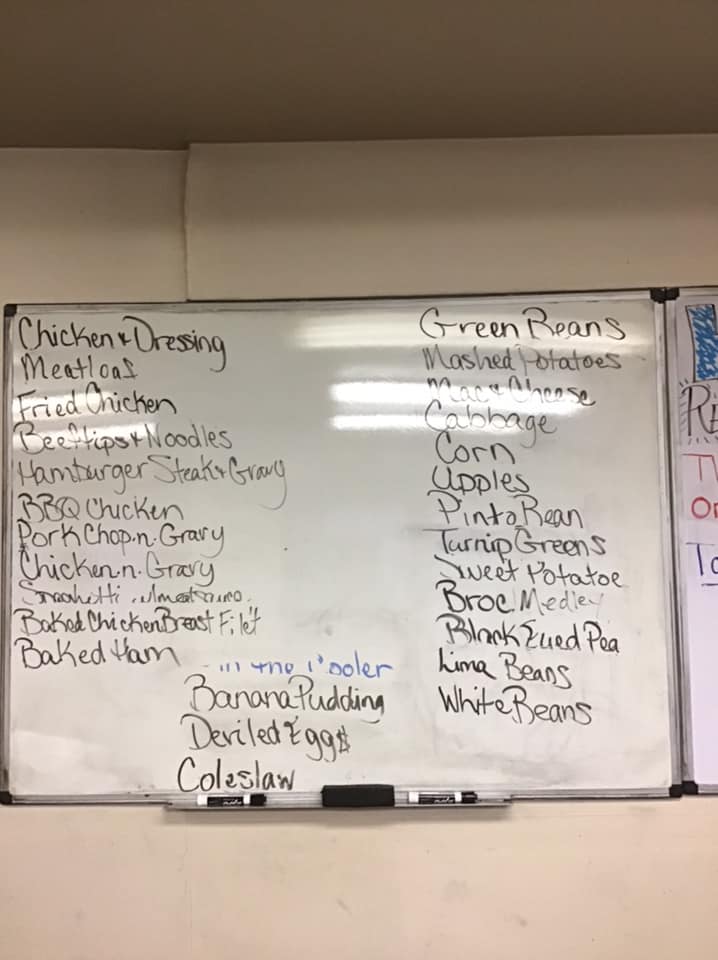 Chicken & Dressing
Meatloaf
Fried Chicken
Beef tips & Noodles
Hamburger Steak & Gravy
BBQ Chicken
Pork Chop.n.Gravy
Chicken.n.Gravy
Spaghetti
Baked Chicken Breast Filet
Baked Ham
Green Beans
Mashed Potatoes
Mac & Cheese
Cabbage
Corn
Apples
Pinto Bean
Turnip Greens
Sweet Potatoe
Broc Medley
Black Eyed Pea
Lima Beans
White Beans
in the Cooler
Banana Pudding
Deviled Eggs
Coleslaw